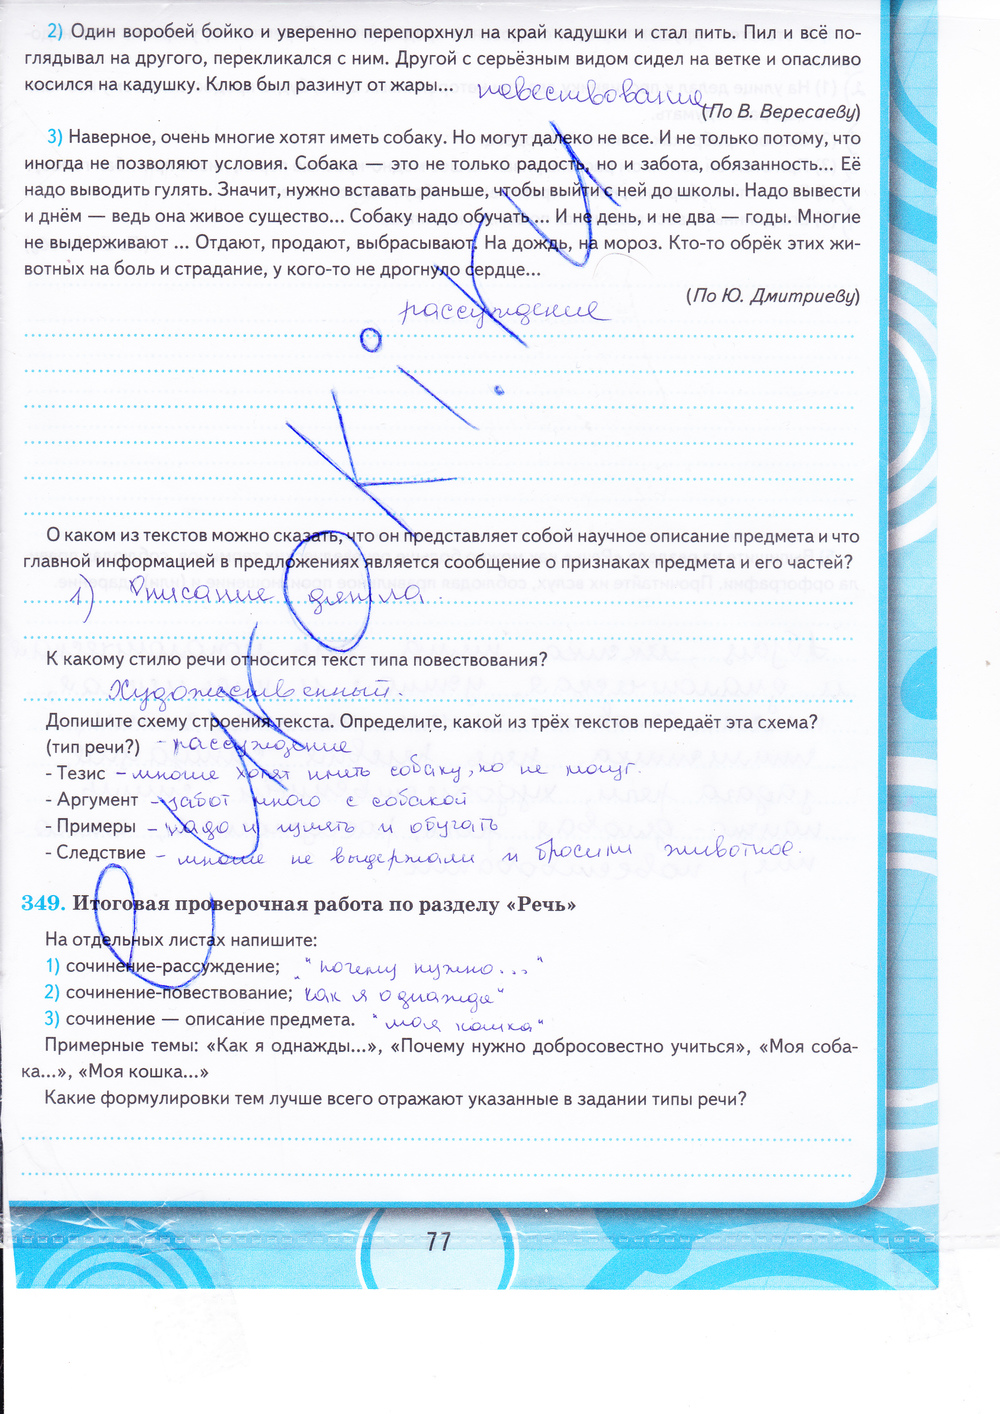 2) Один воробей бойко и уверенно перепорхнул на край кадушки и стал пить. Пил и всё по-
глядывал на другого, перекликался с ним. Другой с серьёзным видом сидел на ветке и опасливо
косился на кадушку. Клюв был разинут от жары... повествование
(По В. Вересаеву)
3) Наверное, очень многие хотят иметь собаку. Но могут далеко не все. И не только потому, что
иногда не позволяют условия. Собака — это не только радость, но и забота, обязанность... Её
надо выводить гулять. Значит, нужно вставать раньше, чтобы выйти с ней до школы. Надо вывести
и днём — ведь она живое существо... Собаку надо обучать ... И не день, и не два — годы. Многие
не выдерживают ... Отдают, продают, выбрасывают. На дождь, на мороз. Кто-то обрёк этих жи-
вотных на боль и страдание, у кого-то не дрогнуло сердце...
(По Ю. Дмитриеву)
рассуждение
О каком из текстов можно сказать, что он представляет собой научное описание предмета и что
главной информацией в предложениях является сообщение о признаках предмета и его частей?
1) Описание дятла.
К какому стилю речи относится текст типа повествования?
Художественный.
Допишите схему строения текста. Определите, какой из трёх текстов передаёт эта схема?
(тип речи?) - рассуждение
- Тезис – многие хотят иметь собаку, но не могут.
- Аргумент – забот много с собакой
- Примеры – надо и гулять и обучать
- Следствие – многие не выдержали и бросили животное.
349. Итоговая проверочная работа по разделу «Речь»
На отдельных листах напишите:
1) сочинение-рассуждение; "Почему нужно..."
2) сочинение-повествование; "Как я однажды"
3) сочинение — описание предмета. "Моя кошка"
Примерные темы: «Как я однажды...», «Почему нужно добросовестно учиться», «Моя соба-
ка...», «Моя кошка...»
Какие формулировки тем лучше всего отражают указанные в задании типы речи?
77